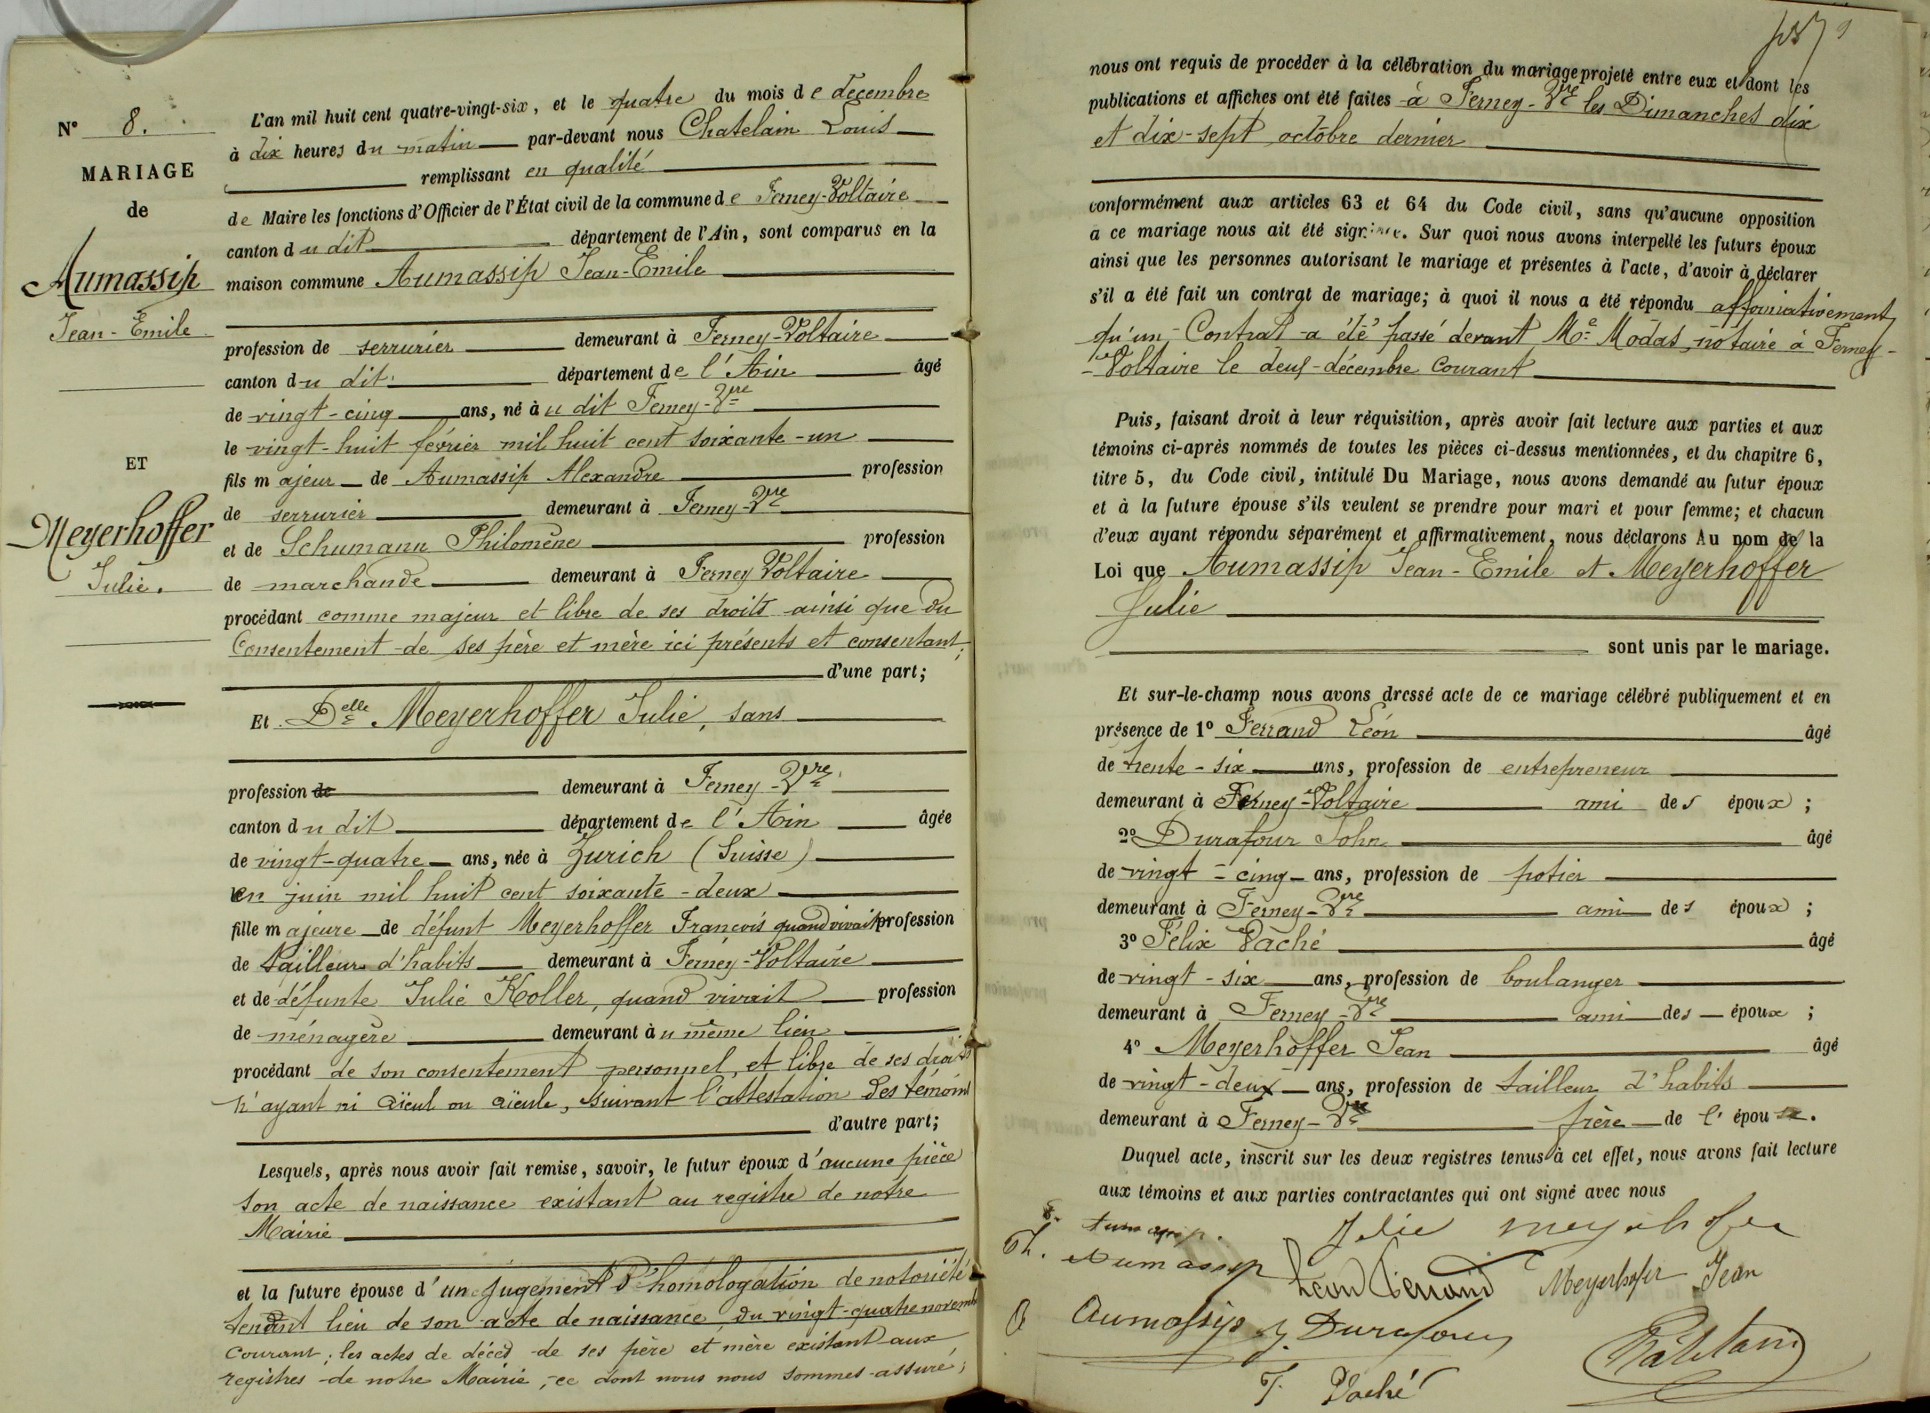 N° 8.
MARIAGE
de
Aumassip
Jean-Emile
ET
Meyerhoffer
Julie.
L'an mil huit cent quatre-vingt-six, et le quatre du mois de décembre
à dix heures du matin par-devant nous Chatelain Louis
remplissant en qualité
de Maire les fonctions d'Officier de l'État civil de la commune de Ferney-Voltaire
canton du dit département de l'Ain, sont comparus en la
maison commune Aumassip Jean-Emile
profession de serrurier demeurant à Ferney-Voltaire
canton du dit département de l'Ain âgé
de vingt-cinq ans, né à u dit Ferney-Vre
le vingt-huit février mil huit cent soixante-un
fils majeur de Aumassip Alexandre profession
de serrurier demeurant à Ferney-Vre
et de Schumann Philomène profession
de marchande demeurant à Ferney Voltaire
procédant comme majeur et libre de ses droits ainsi que du
Consentement de ses père et mère ici présents et consentant;
d'une part;
Et Delle Meyerhoffer Julie, sans
profession de demeurant à Ferney-Vre
canton du dit département de l'Ain âgée
de vingt-quatre ans, née à Zurich (Suisse)
en juin mil huit cent soixante-deux
fille majeure de défunt Meyerhoffer François quand vivait profession
de tailleur d'habits demeurant à Ferney-Voltaire
et de défunte Julie Koller, quand vivait profession
de ménagère demeurant au même lieu
procédant de son consentement personnel, et libre de ses droits
n'ayant ni aïeul ou aïeule, suivant l'attestation des témoins
d'autre part;
Lesquels, après nous avoir fait remise, savoir, le futur époux d'aucune pièce
son acte de naissance existant au registre de notre
Mairie
et la future épouse d'un jugement d'homologation de notoriété
tenant lieu de son acte de naissance, du vingt-quatre novemb
courant; les actes de décès de ses père et mère existant aux
registres de notre Mairie, ce dont nous nous sommes assuré;
nous ont requis de procéder à la célébration du mariage projeté entre eux et dont les
publications et affiches ont été faites à Ferney-Vre les Dimanches dix
et dix-sept octobre dernier
conformément aux articles 63 et 64 du Code civil, sans qu'aucune opposition
à ce mariage nous ait été signifiée. Sur quoi nous avons interpellé les futurs époux
ainsi que les personnes autorisant le mariage et présentes à l'acte, d'avoir à déclarer
s'il a été fait un contrat de mariage; à quoi il nous a été répondu affirmativement
qu'un Contrat a été passé devant Me Modas, notaire à Ferney-
-Voltaire le deux décembre courant
Puis, faisant droit à leur réquisition, après avoir fait lecture aux parties et aux
témoins ci-après nommés de toutes les pièces ci-dessus mentionnées, et du chapitre 6,
titre 5, du Code civil, intitulé Du Mariage, nous avons demandé au futur époux
et à la future épouse s'ils veulent se prendre pour mari et pour femme; et chacun
d'eux ayant répondu séparément et affirmativement, nous déclarons Au nom de la
Loi que Aumassip Jean-Emile et Meyerhoffer
Julie
sont unis par le mariage.
Et sur-le-champ nous avons dressé acte de ce mariage célébré publiquement et en
présence de 1° Ferrand Léon âgé
de trente-six ans, profession de entrepreneur
demeurant à Ferney-Voltaire ami des époux;
2° Durafour John âgé
de vingt-cinq ans, profession de potier
demeurant à Ferney-Vre ami des époux;
3° Félix Vaché âgé
de vingt-six ans, profession de boulanger
demeurant à Ferney-Vre ami des époux;
4° Meyerhoffer Jean âgé
de vingt-deux ans, profession de tailleur d'habits
demeurant à Ferney-Vre frère de l'épouse.
Duquel acte, inscrit sur les deux registres tenus à cet effet, nous avons fait lecture
aux témoins et aux parties contractantes qui ont signé avec nous
Julie Meyerhofer
Ph. Aumassip Léon Ferrand Meyerhofer Jean
Aumassip J. Durafour
F. Vaché